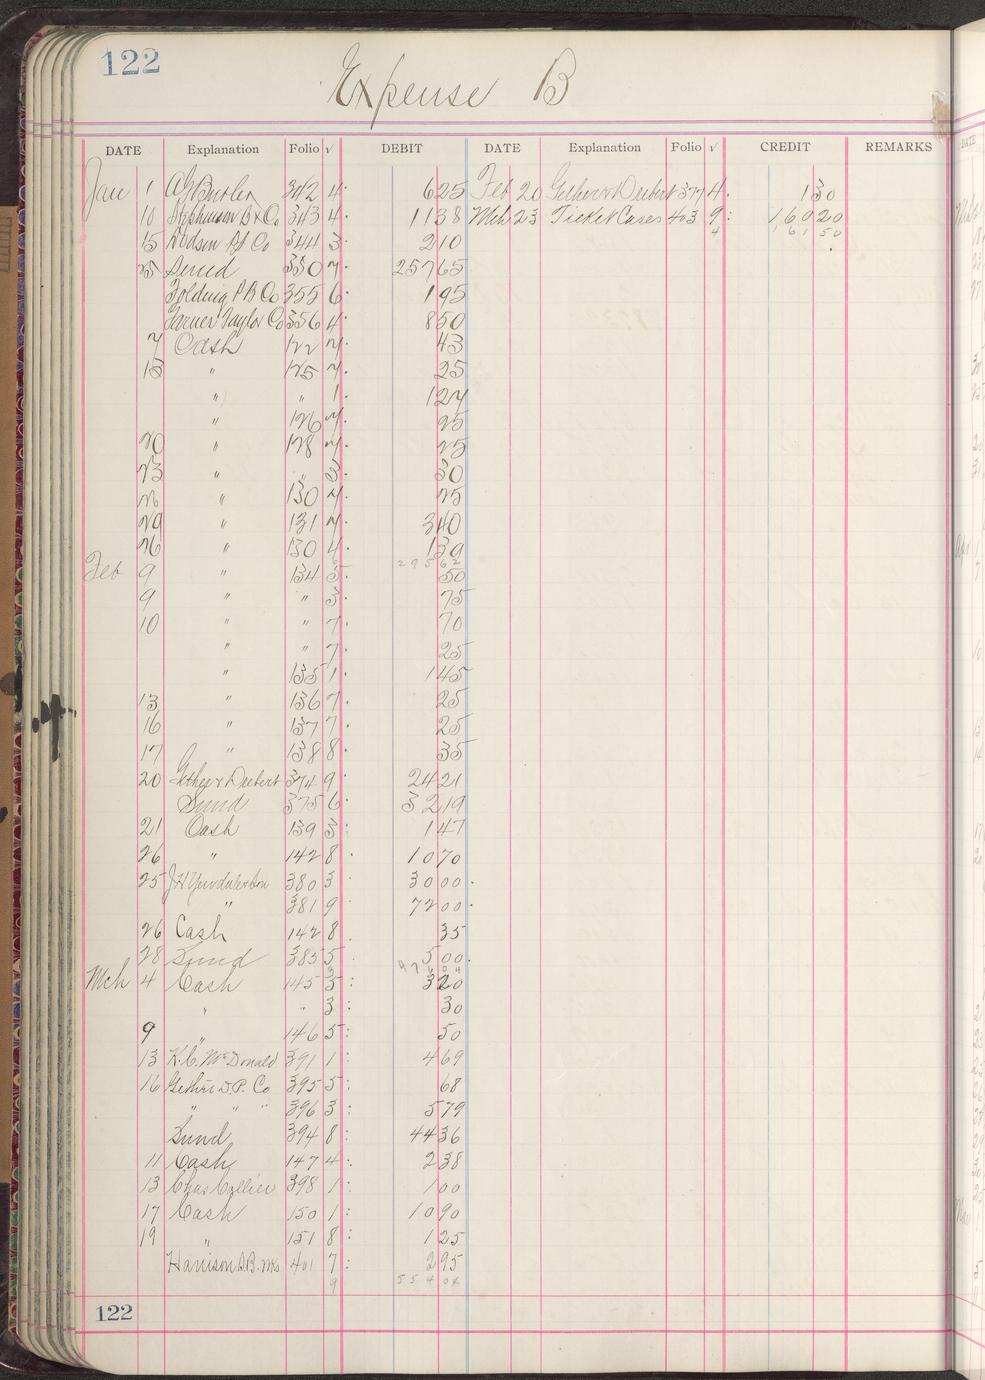 122
Expense B
DATE Explanation Folio √ DEBIT DATE Explanation Folio √ CREDIT REMARKS
Jan 1 A G Butler 342 4 6 25 Feb 20 Gether & Deibert 377 4 1 30
10 Stephenson B & Co 343 4 11 38 Mch 23 Ticket Cases 403 9 160 20
15 Hodson Ptg Co 344 3 2 10 4 161 50
25 Sund 350 7 257 65
Folding P B Co 355 6 1 95
Farner Taylor Co 356 4 8 50
7 Cash 122 7 43
18 " 125 7 25
" " 1 1 27
" 126 7 25
20 " 128 7 25
23 " " 3 30
26 " 130 7 25
29 " 131 7 3 40
26 " 130 4 1 39
295 62
Feb 9 " 134 5 50
9 " " 3 75
10 " " 7 70
" " 7 25
" 135 1 1 45
13 " 136 7 25
16 " 137 7 25
17 " 138 8 35
20 Gether & Deibert 374 9 24 21
Sund 375 6 32 19
21 Cash 139 3 1 47
26 " 142 8 10 70
25 J H & Son 380 3 30 00
" 381 9 72 00
26 Cash 142 8 35
28 Sund 385 5 5 00
Mch 4 Cash 145 5 3 20
" " 3 30
9 " 146 5 50
13 K. C. McDonald 391 1 4 69
16 D. P. Co 395 5 68
" " " 396 3 5 79
Sund 394 8 44 36
11 Cash 147 4 2 38
13 Chas Collier 398 1 1 00
17 Cash 150 1 10 90
19 " 151 8 1 25
Harrison S.B. Wks 401 7 2 95
9 554 04
122